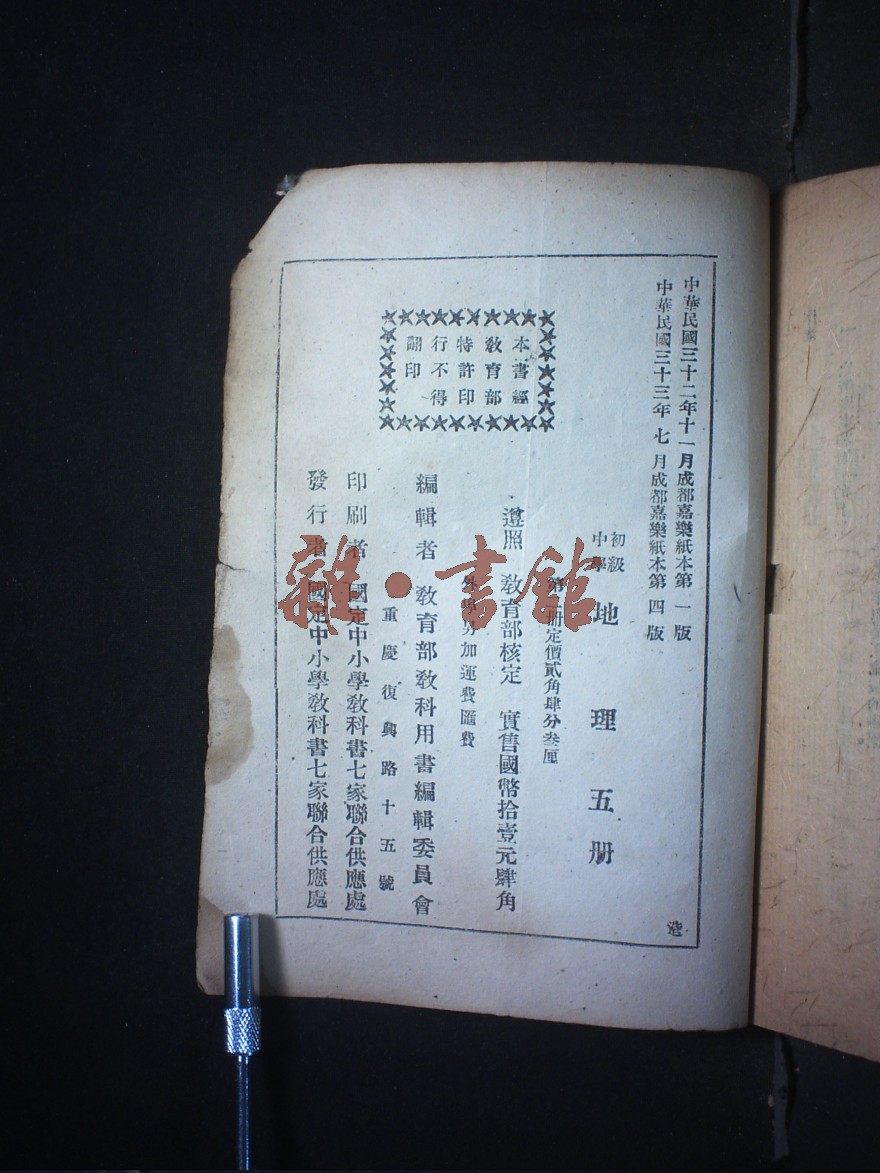 中華民國三十二年十一月成都嘉樂紙本第一版
中華民國三十三年七月成都嘉樂紙本第四版
初級
中學
地理五册
第二册定價貳角肆分叁厘
遵照 教育部核定 實售國幣拾壹元肆角
另加運費匯費
編輯者 教育部教科用書編輯委員會
重慶復興路十五號
印刷者 國定中小學教科書七家聯合供應處
發行者 國定中小學教科書七家聯合供應處
本書經
教育部
特許印
行不得
翻印
雜·書館